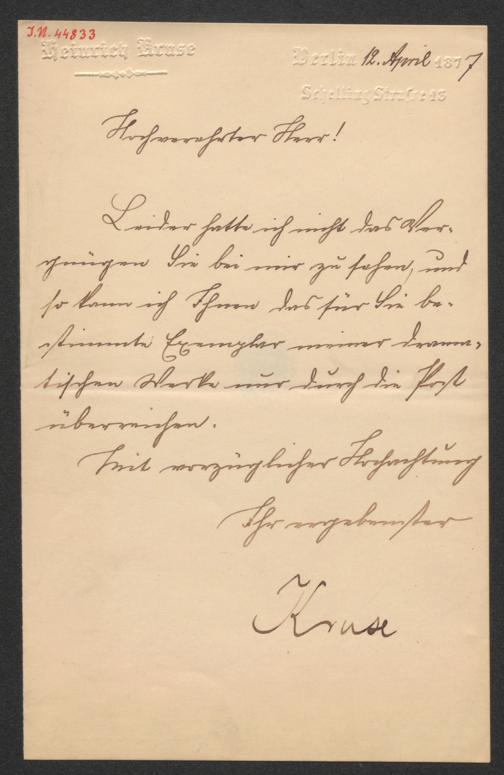 J.N. 44833
Heinrich Kruse
Berlin 12. April 1877
Schelling Strasse 13
Hochverehrter Herr!
Leider hatte ich nicht das Ver-
gnügen Sie bei mir zu sehen, und
so kann ich Ihnen das für Sie be-
stimmte Exemplar meiner drama-
tischen Werke nur durch die Post
überreichen.
Mit vorzüglicher Hochachtung
Ihr ergebenster
Kruse